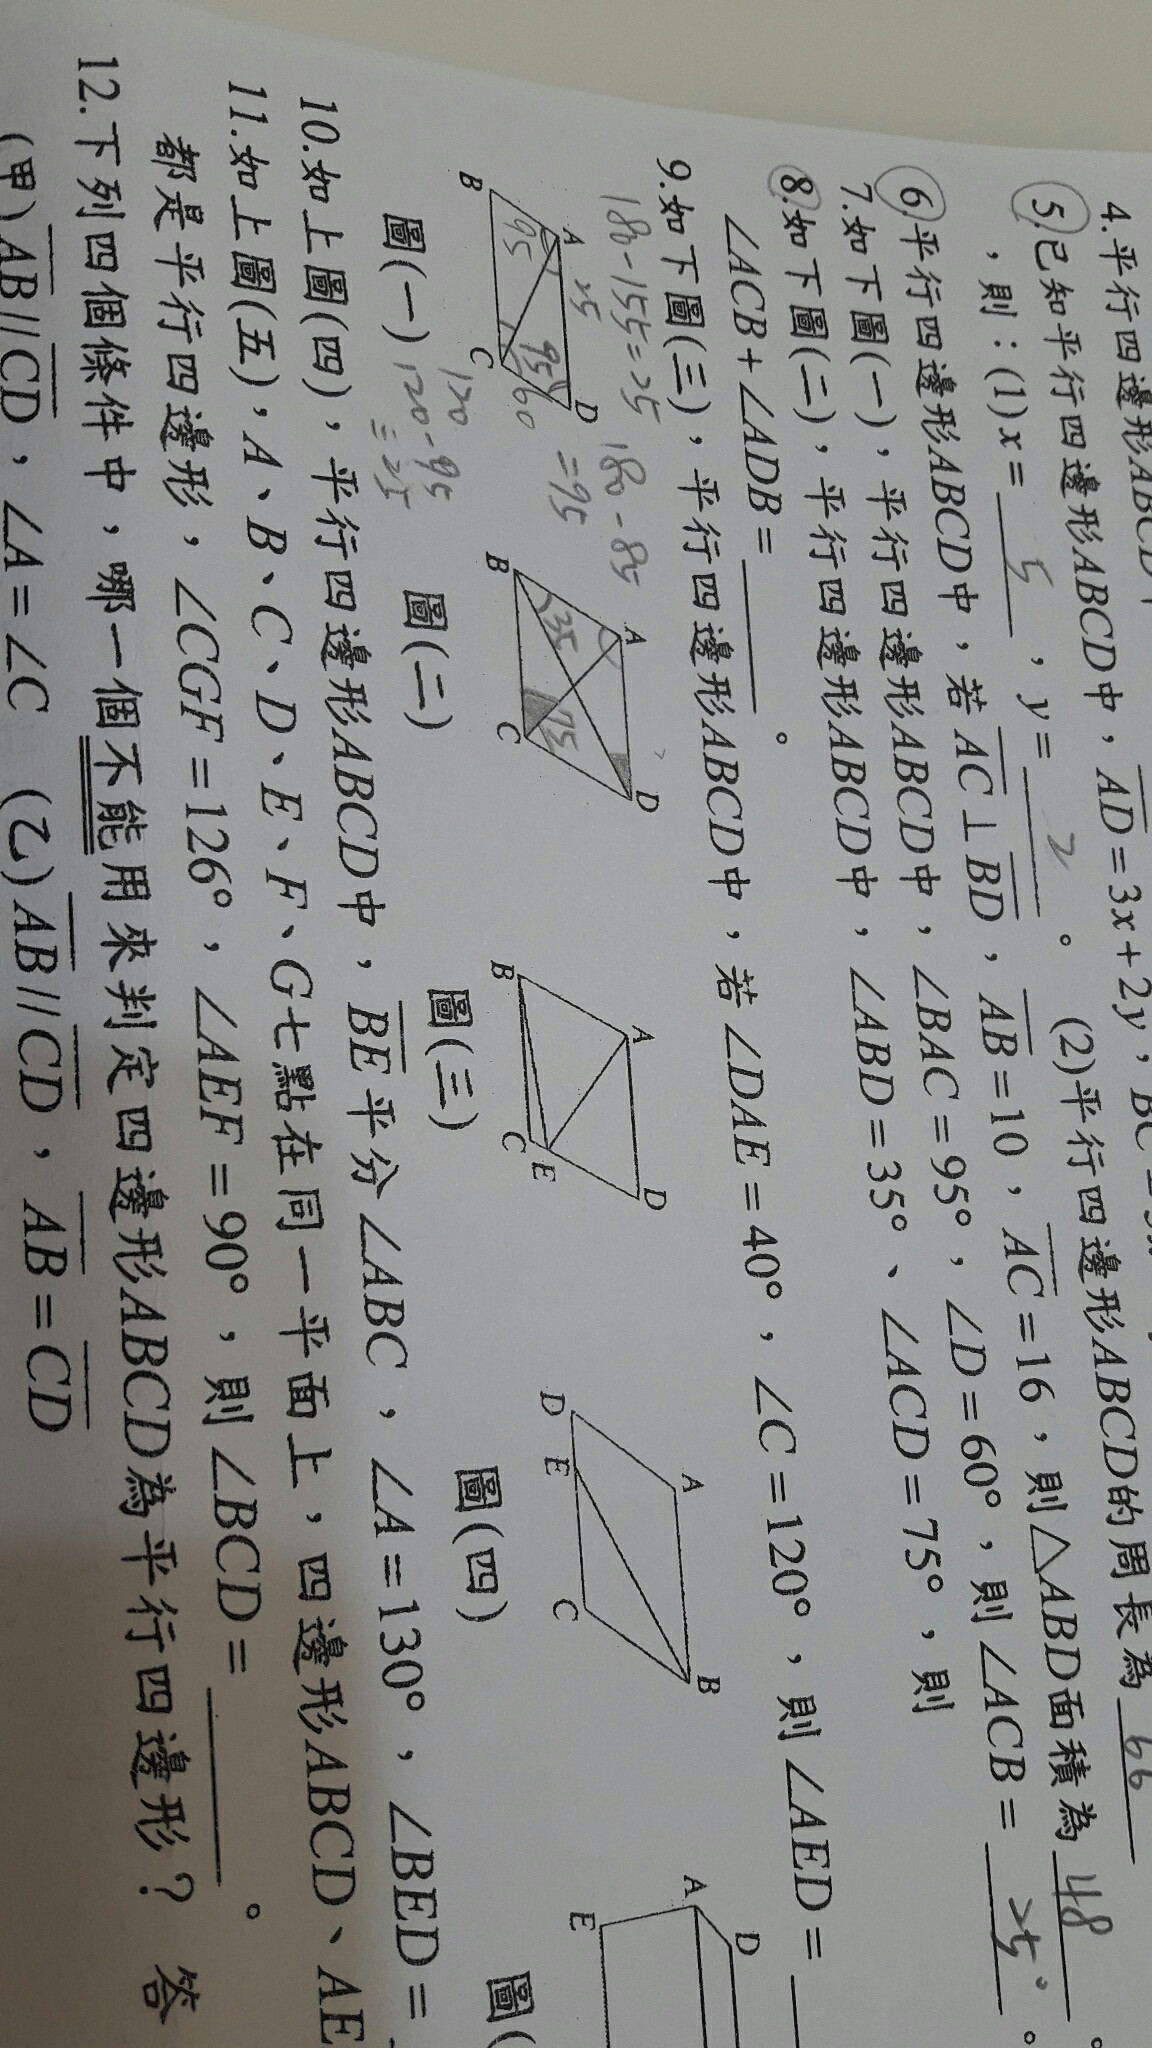 4.平行四邊形ABCD
⑤已知平行四邊形ABCD中，AD=3x+2y，
，則：(1)x= 5 ，y= 2 。 (2)平行四邊形ABCD的周長為 66
⑥平行四邊形ABCD中，若AC⊥BD，AB=10，AC=16，則△ABD面積為 48 。
7.如下圖(一)，平行四邊形ABCD中，∠BAC=95°，∠D=60°，則∠ACB= 25° 。
⑧如下圖(二)，平行四邊形ABCD中，∠ABD=35°、∠ACD=75°，則
∠ACB+∠ADB= 。
9.如下圖(三)，平行四邊形ABCD中，若∠DAE=40°，∠C=120°，則∠AED=
180-155=25
180-85
=95
A 25 D
95 95 60
B C
A D
35 75
B C
A D
B C E
A B
D E C
A D
E
圖(一)
120
120-95
=25
圖(二)
圖(三)
圖(四)
圖(
10.如上圖(四)，平行四邊形ABCD中，BE平分∠ABC，∠A=130°，∠BED=
11.如上圖(五)，A、B、C、D、E、F、G七點在同一平面上，四邊形ABCD、AE
都是平行四邊形，∠CGF=126°，∠AEF=90°，則∠BCD= 。
12.下列四個條件中，哪一個不能用來判定四邊形ABCD為平行四邊形？ 答
(甲)AB//CD，∠A=∠C (乙)AB//CD，AB=CD